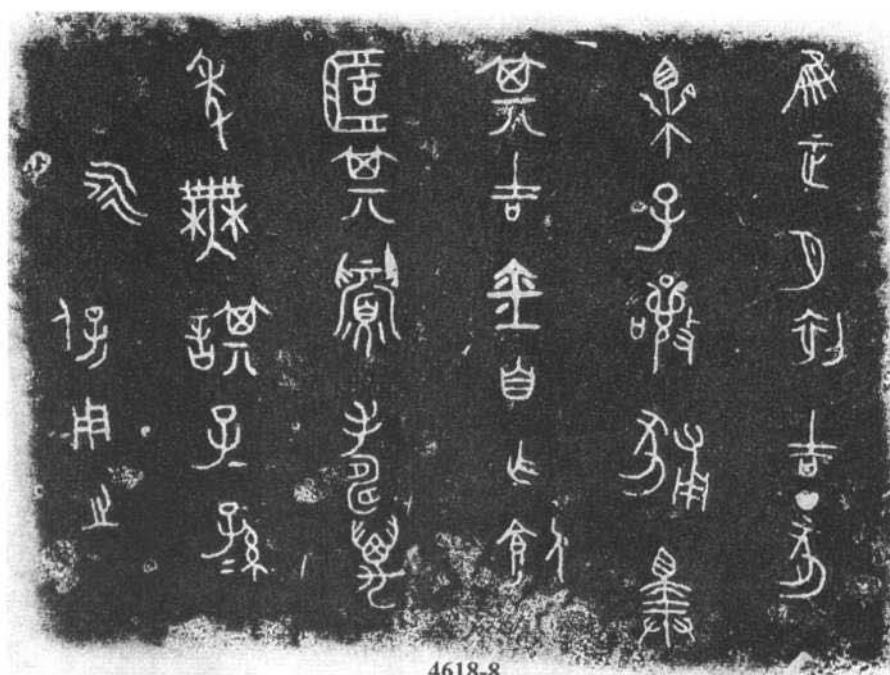 隹正月初吉丁亥
樂子嚷豧擇
其吉金自乍飤
簠其眉壽萬
年無諆子=孫=
永保用之
4618-8